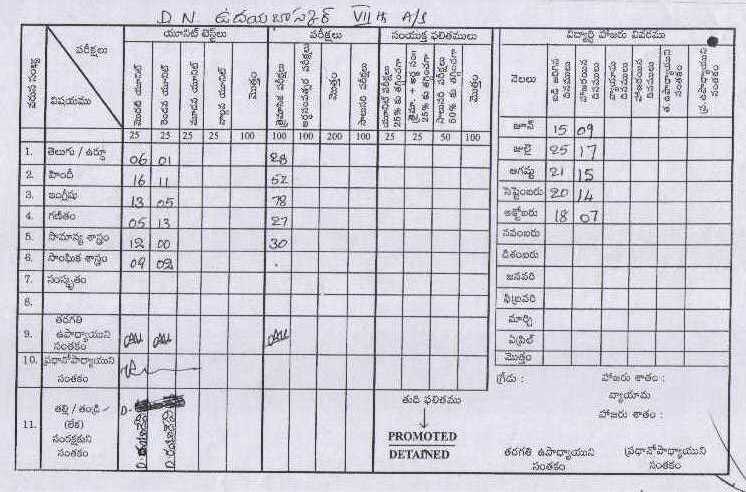 D N. ఉదయభాస్కర్ VII th A/S
వరుస సంఖ్య
పరీక్షలు
విషయము
యూనిట్ టెస్ట్‌లు
పరీక్షలు
సంయుక్త ఫలితములు
విద్యార్థి హాజరు వివరము
మొదటి యూనిట్
రెండవ యూనిట్
మూడవ యూనిట్
నాల్గవ యూనిట్
మొత్తం
త్రైమాసిక పరీక్షలు
అర్థసంవత్సర పరీక్షలు
మొత్తం
సాలుసరి పరీక్షలు
యూనిట్ పరీక్షలు 25% కు తగ్గించగా
త్రైమా. + అర్థ సం 25% కు తగ్గించగా
సాలుసరి పరీక్షలు 50% కు తగ్గించగా
మొత్తం
నెలలు
25 25 25 25 100 100 100 200 100 25 25 50 100
జూన్ 15 09
1. తెలుగు / ఉర్దూ 06 01 28
జులై 25 17
2. హిందీ 16 11 52
ఆగష్టు 21 15
3. ఇంగ్లీషు 13 05 78
సెప్టెంబరు 20 14
4. గణితం 05 13 27
అక్టోబరు 18 07
5. సామాన్య శాస్త్రం 12 00 30
నవంబరు
6. సాంఘిక శాస్త్రం 09 02
డిశంబరు
7. సంస్కృతం
జనవరి
8.
ఫిబ్రవరి
9. తరగతి
ఉపాధ్యాయుని
సంతకం
మార్చి
ఏప్రిల్
10. ప్రధానోపాధ్యాయుని
సంతకం
మొత్తం
గ్రేడు :
హాజరు శాతం :
వ్యాయామ
హాజరు శాతం :
11. తల్లి / తండ్రి
(లేక)
సంరక్షకుని
సంతకం
తుది ఫలితము
PROMOTED
DETAINED
తరగతి ఉపాధ్యాయుని
సంతకం
ప్రధానోపాధ్యాయుని
సంతకం